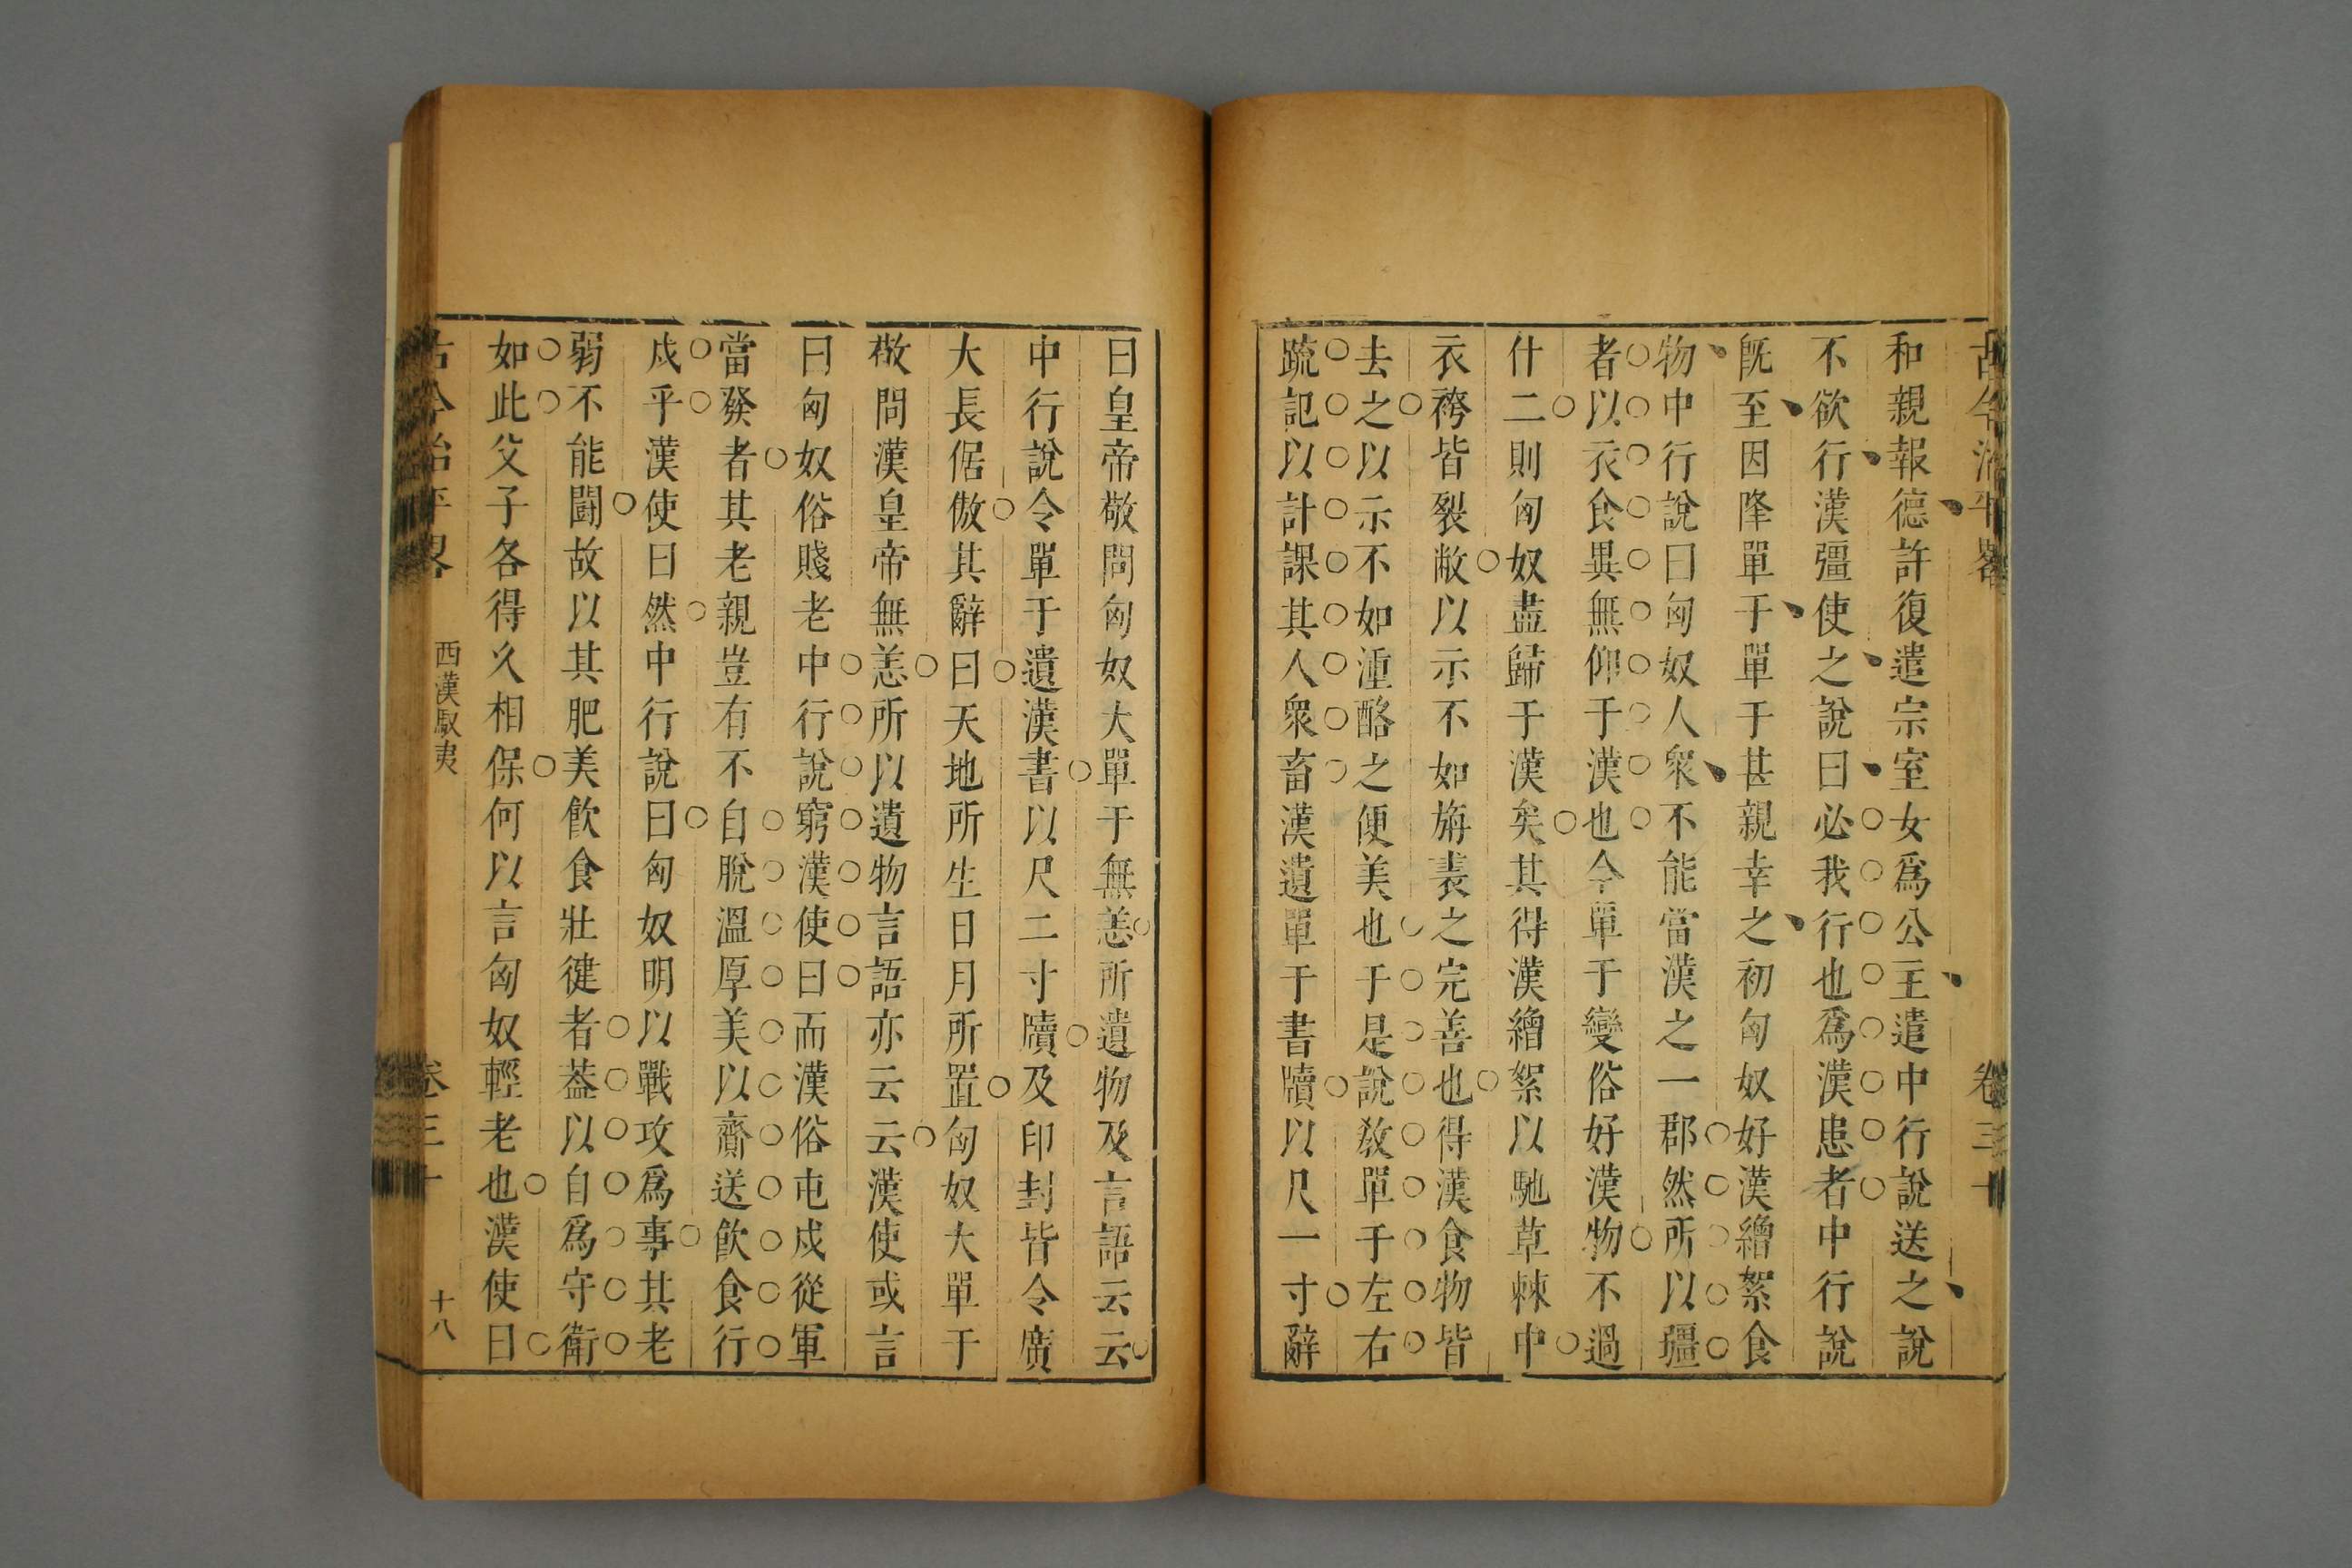 古今治平畧 卷三十
和親報德許復遣宗室女爲公主遣中行說送之說
不欲行漢彊使之說曰必我行也爲漢患者中行說
旣至因降單于單于甚親幸之初匈奴好漢繒絮食
物中行說曰匈奴人衆不能當漢之一郡然所以彊
者以衣食異無仰于漢也今單于變俗好漢物不過
什二則匈奴盡歸于漢矣其得漢繒絮以馳草棘中
衣袴皆裂敝以示不如旃裘之完善也得漢食物皆
去之以示不如湩酪之便美也于是說敎單于左右
疏記以計課其人衆畜漢遺單于書牘以尺一寸辭
曰皇帝敬問匈奴大單于無恙所遺物及言語云云
中行說令單于遺漢書以尺二寸牘及印封皆令廣
大長倨傲其辭曰天地所生日月所置匈奴大單于
敬問漢皇帝無恙所以遺物言語亦云云漢使或言
曰匈奴俗賤老中行說窮漢使曰而漢俗屯戍從軍
當發者其老親豈有不自脫溫厚美以齎送飮食行
戍乎漢使曰然中行說曰匈奴明以戰攻爲事其老
弱不能鬪故以其肥美飮食壯健者葢以自爲守衛
如此父子各得久相保何以言匈奴輕老也漢使曰
古今治平畧 西漢馭夷 卷三十 十八